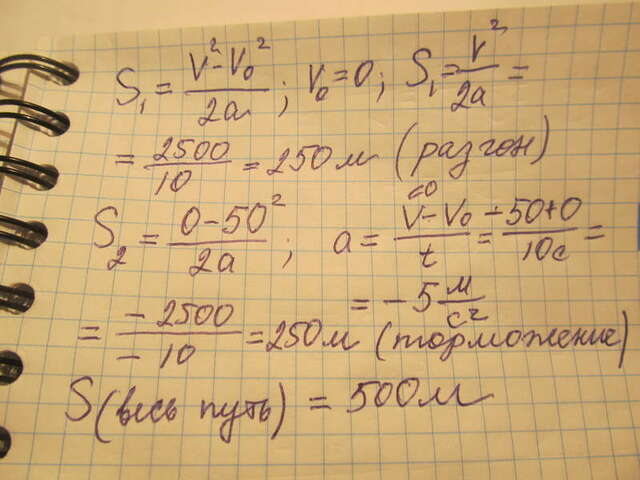 S₁ = (V² - V₀²)/(2a) ; V₀ = 0 ; S₁ = V²/(2a) =
= 2500/10 = 250 м (разгон)
S₂ = (0 - 50²)/(2a) ; a = (V⁼⁰ - V₀)/t = (-50+0)/(10c) =
= -5 м/с²
= (-2500)/(-10) = 250 м (торможение)
S (весь путь) = 500 м